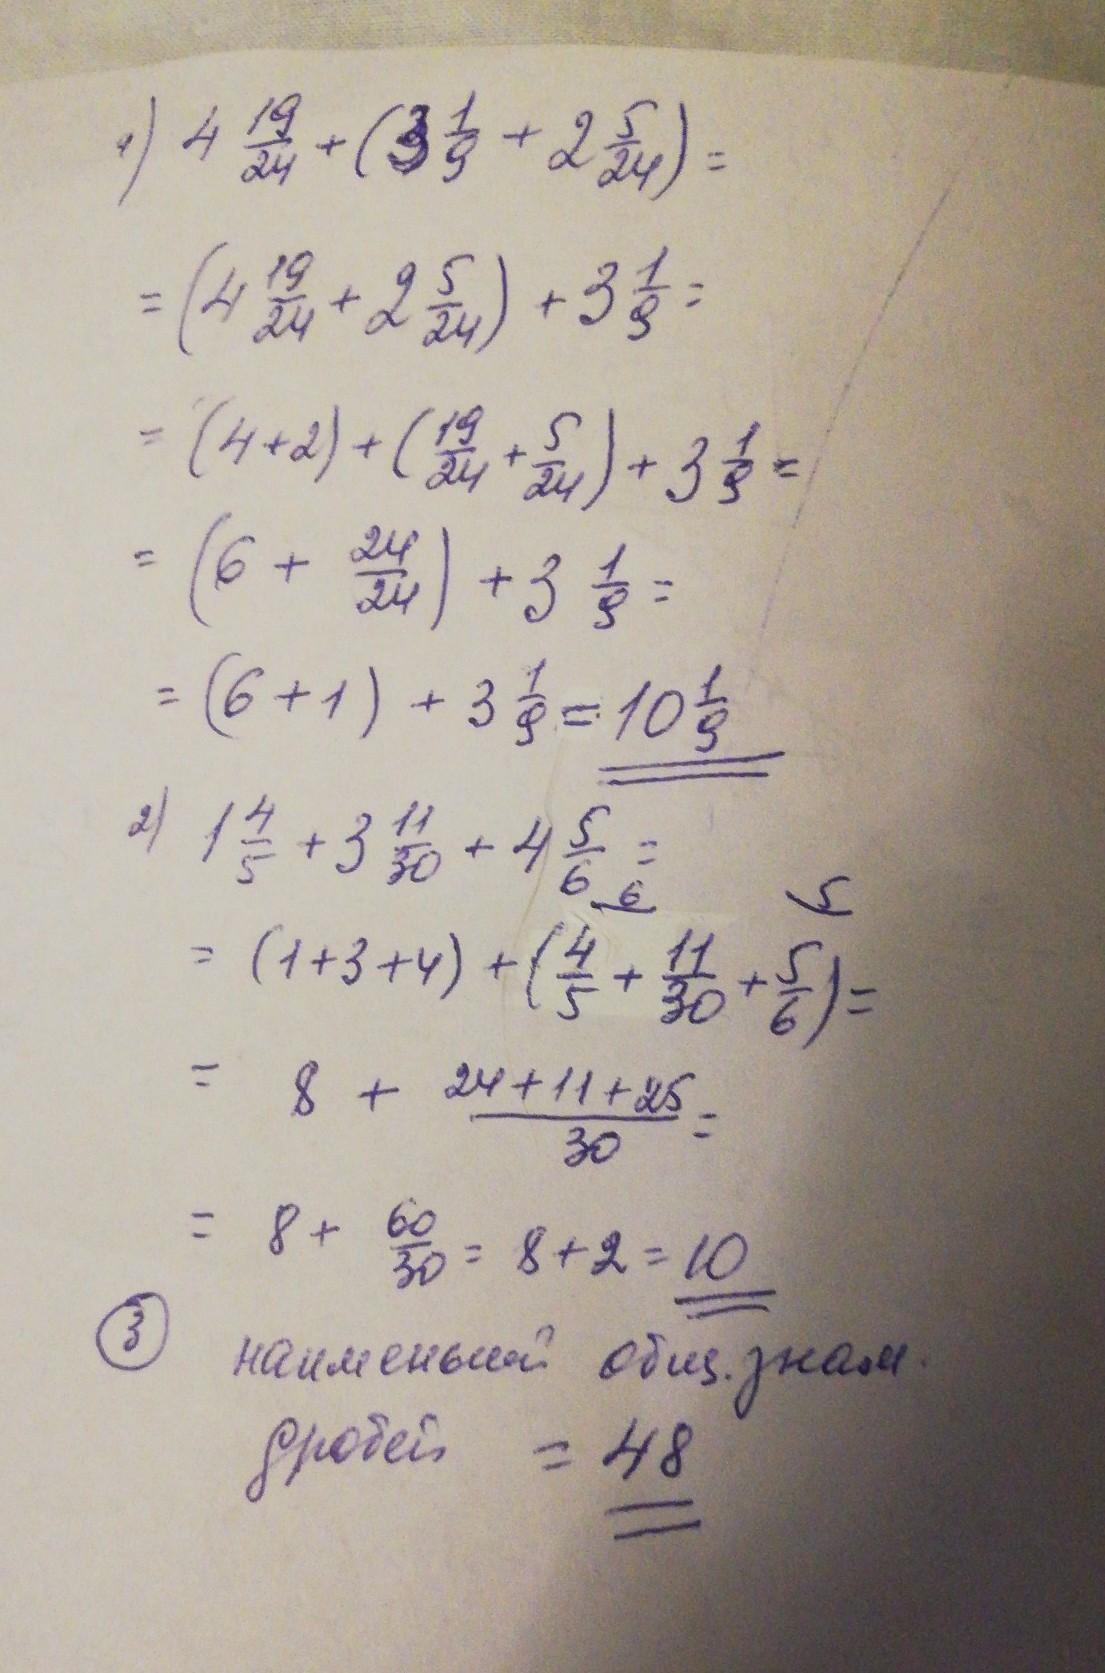 1) 4 19/24 + (3 1/9 + 2 5/24) =
= (4 19/24 + 2 5/24) + 3 1/9 =
= (4+2) + (19/24 + 5/24) + 3 1/9 =
= (6 + 24/24) + 3 1/9 =
= (6 + 1) + 3 1/9 = 10 1/9
2) 1 4/5 + 3 11/30 + 4 5/6 =
6 5
= (1+3+4) + (4/5 + 11/30 + 5/6) =
= 8 + (24+11+25)/30 =
= 8 + 60/30 = 8 + 2 = 10
3 наименьший общ. знам.
дробей = 48